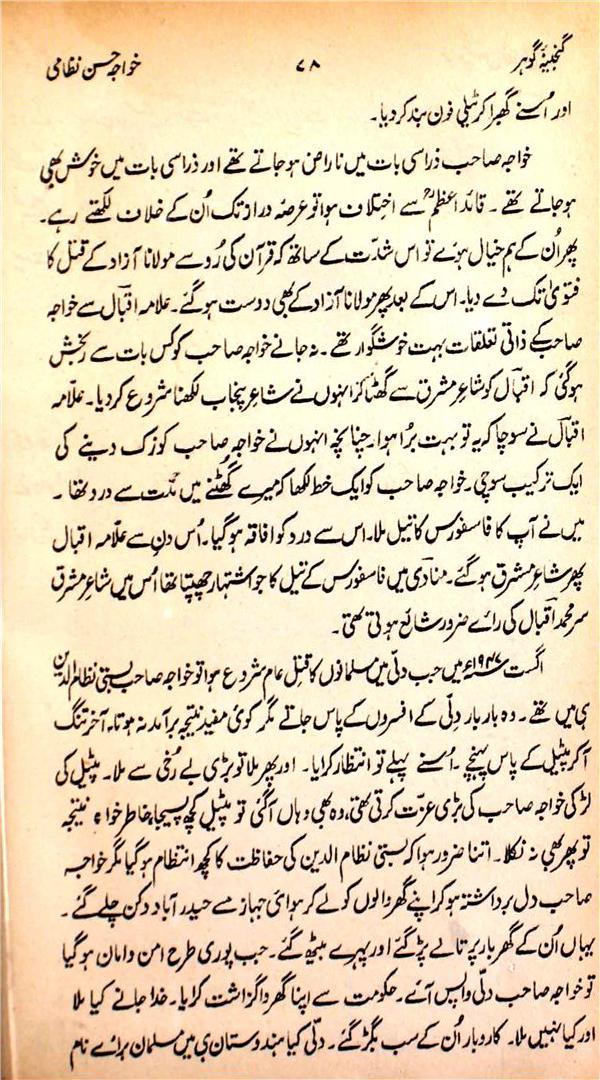 گنجینۂ گوہر ۷۸ خواجہ حسن نظامی
اور اُسنے گھبرا کر ٹیلی فون بند کر دیا۔
خواجہ صاحب ذراسی بات میں ناراض ہو جاتے تھے اور ذراسی بات میں خوش بھی
ہو جاتے تھے۔ قائد اعظمؒ سے اختلاف ہوا تو عرصہ دراز تک اُن کے خلاف لکھتے رہے۔
پھر اُن کے ہم خیال ہوئے تو اس شدت کے ساتھ کہ قرآن کی رُو سے مولانا آزاد کے قتل کا
فتویٰ تک دے دیا۔ اس کے بعد پھر مولانا آزاد کے بھی دوست ہو گئے۔ علامہ اقبالؔ سے خواجہ
صاحب کے ذاتی تعلقات بہت خوشگوار تھے۔ نہ جانے خواجہ صاحب کو کس بات سے رنجش
ہو گئی کہ اقبالؔ کو شاعرِ مشرق سے گھٹا کر انہوں نے شاعرِ پنجاب لکھنا شروع کر دیا۔ علامہ
اقبالؔ نے سوچا کہ یہ تو بہت بُرا ہوا۔ چنانچہ انہوں نے خواجہ صاحب کو زک دینے کی
ایک ترکیب سوچی۔ خواجہ صاحب کو ایک خط لکھا کہ میرے گھٹنے میں مدّت سے درد تھا۔
میں نے آپ کا فاسفورس کا تیل ملا۔ اس سے درد کو افاقہ ہو گیا۔ اُس دن سے علامہ اقبال
پھر شاعرِ مشرق ہو گئے۔ منادی میں فاسفورس کے تیل کا جو اشتہار چھپتا تھا اُس میں شاعرِ مشرق
سر محمد اقبال کی رائے ضرور شائع ہوتی تھی۔
اگست ۱۹۴۷ء میں جب دلّی میں مسلمانوں کا قتلِ عام شروع ہوا تو خواجہ صاحب بستی نظام الدین
ہی میں تھے۔ وہ بار بار دِلّی کے افسروں کے پاس جاتے مگر کوئی مفید نتیجہ برآمد نہ ہوتا۔ آخر تنگ
آ کر پٹیل کے پاس پہنچے۔ اُسنے پہلے تو انتظار کرایا۔ اور پھر ملا تو بڑی بے رُخی سے ملا۔ پٹیل کی
لڑکی خواجہ صاحب کی بڑی عزّت کرتی تھی، وہ بھی وہاں آ گئی تو پٹیل کچھ پسیجا، خاطر خواہ نتیجہ
تو پھر بھی نہ نکلا۔ اتنا ضرور ہوا کہ بستی نظام الدین کی حفاظت کا کچھ انتظام ہو گیا مگر خواجہ
صاحب دل برداشتہ ہو کر اپنے گھر والوں کو لے کر ہوائی جہاز سے حیدر آباد دکن چلے گئے۔
یہاں اُن کے گھر بار پر تالے پڑ گئے اور پہرے بیٹھ گئے۔ جب پوری طرح امن و امان ہو گیا
تو خواجہ صاحب دلّی واپس آئے۔ حکومت سے اپنا گھر واگزاشت کرایا۔ خدا جانے کیا ملا
اور کیا نہیں ملا۔ کاروبار اُن کے سب بگڑ گئے۔ دلّی کیا ہندوستان ہی میں مسلمان برائے نام